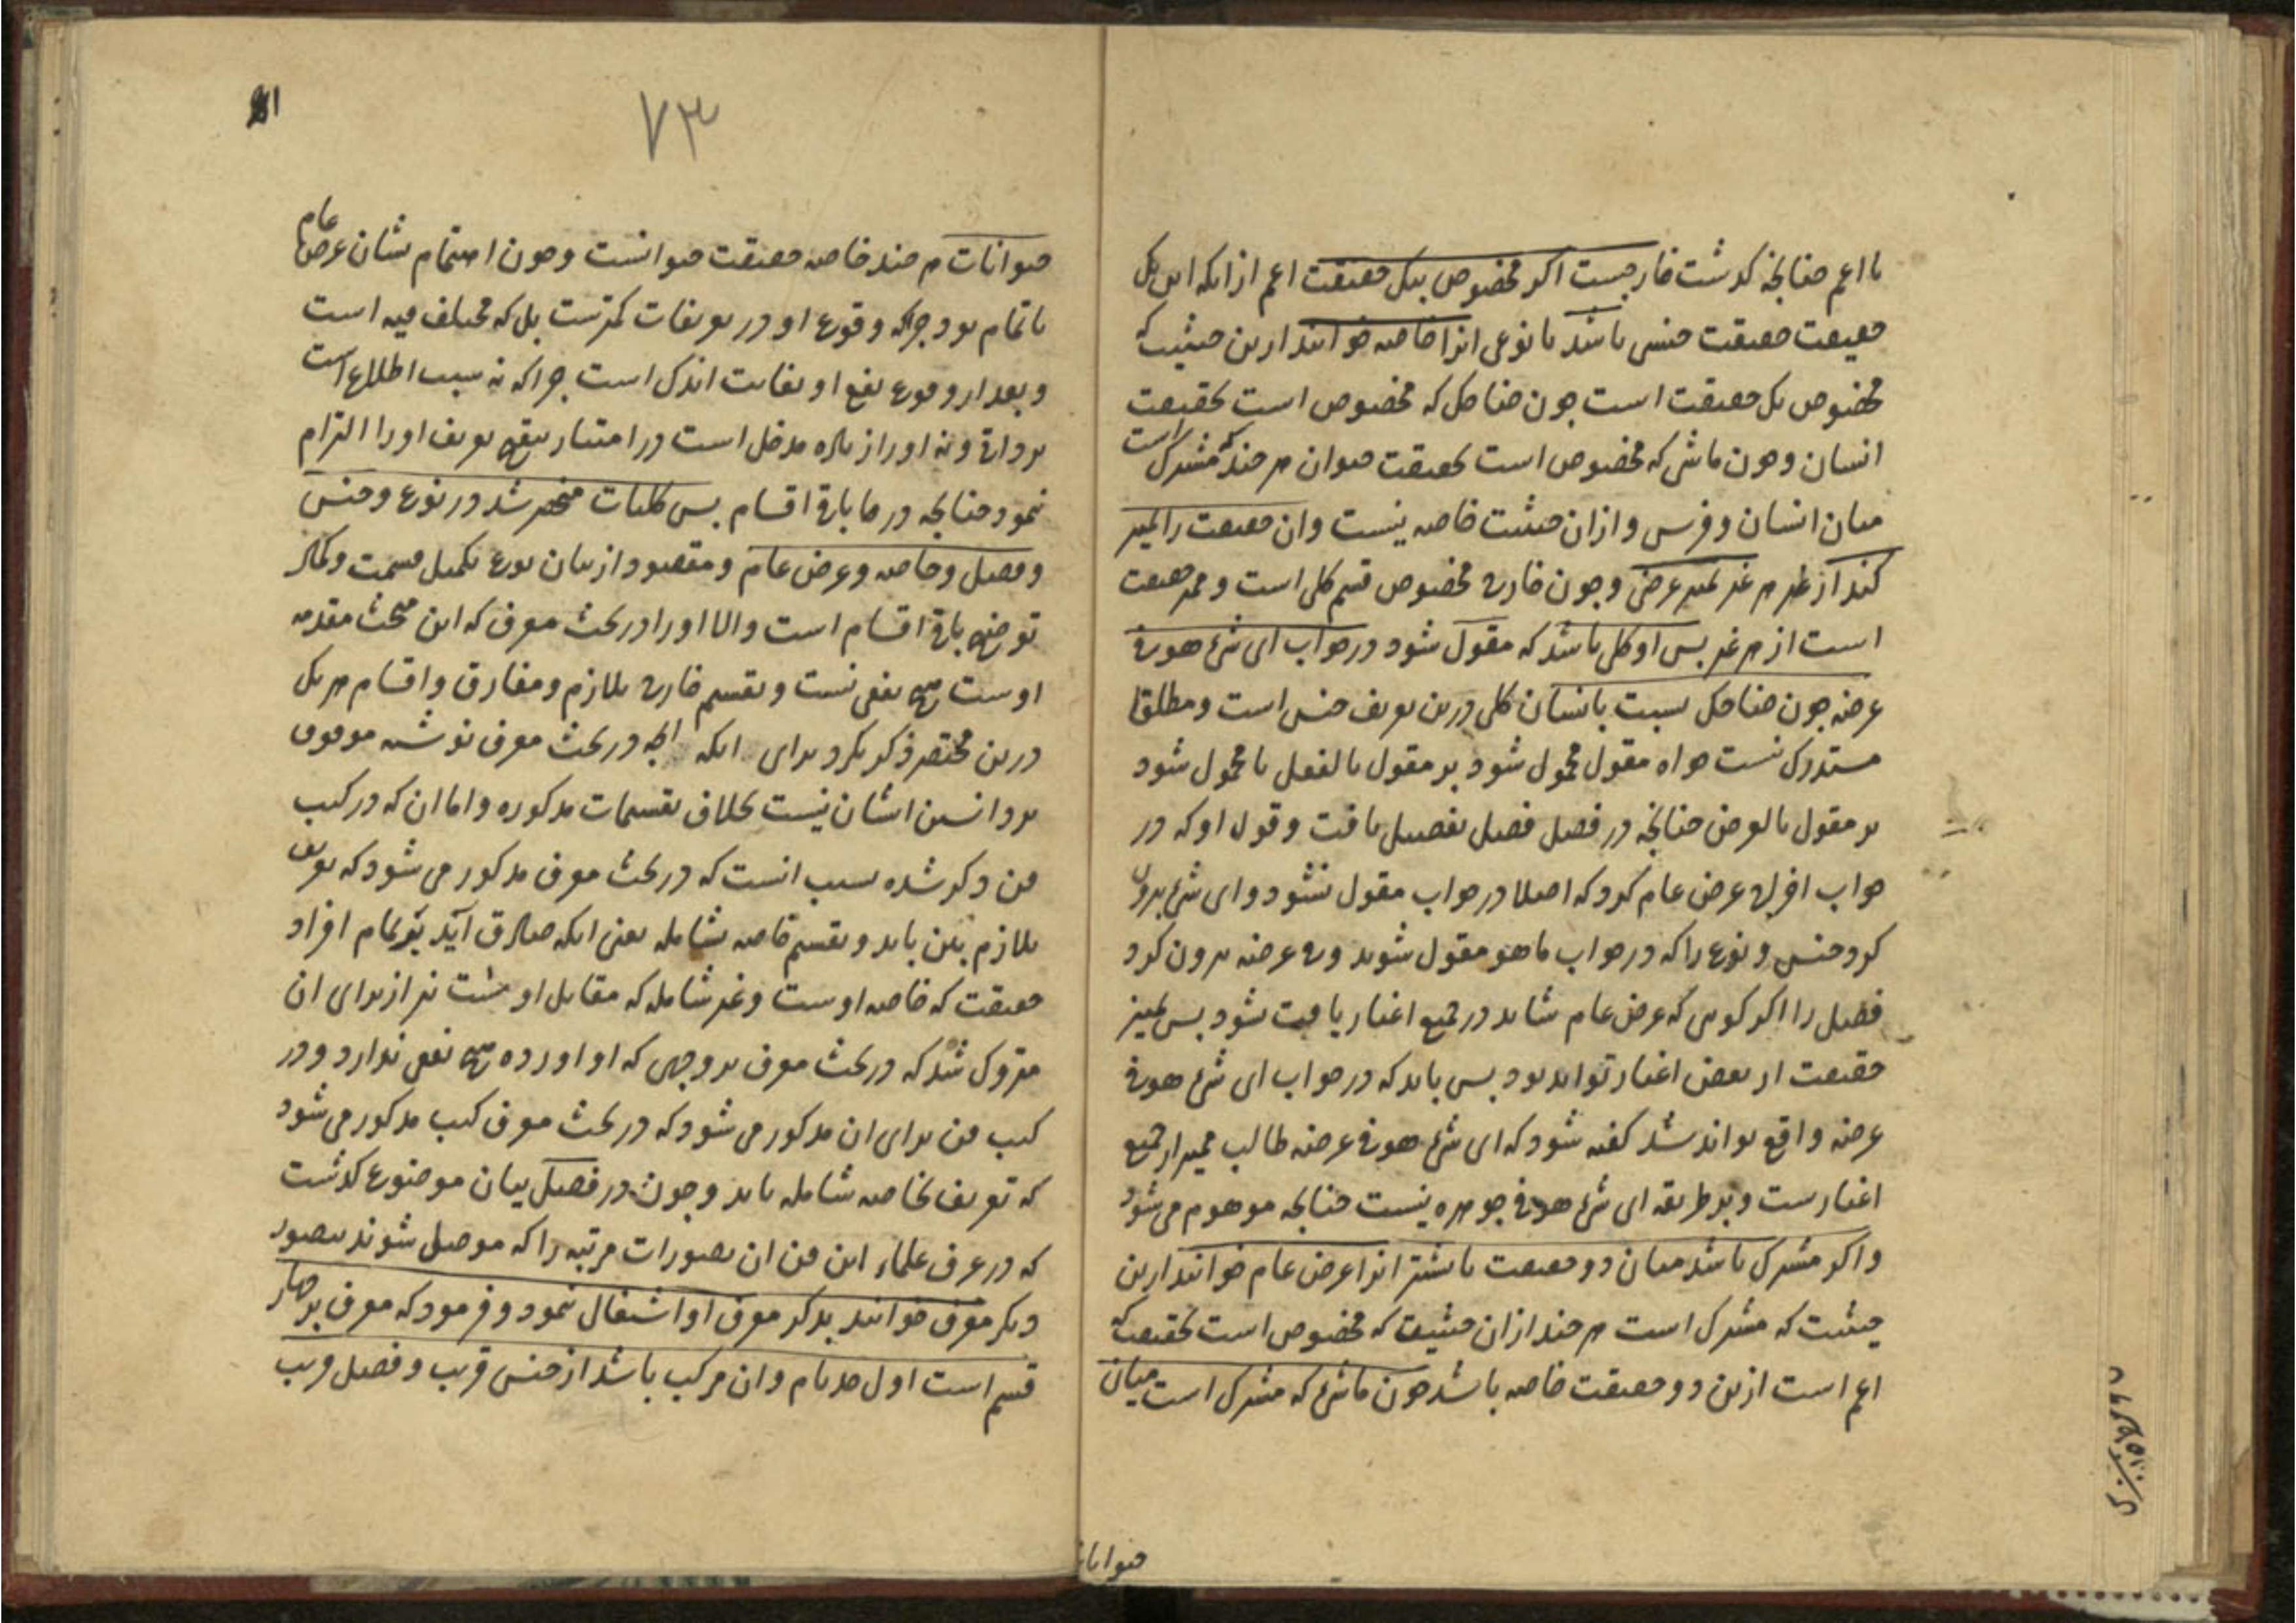 یا اعم چنانچه کذشت خارجست اکر مخصوص بیک حقیقت اعم ازانکه این یک
حقیقت حقیقت جنسی باشد یا نوعی انرا خاصه خوانند ازین حیثیت که
مخصوص یک حقیقت است چون ضاحک که مخصوص است بحقیقت
انسان و چون ماشی که مخصوص است بحقیقت حیوان هر چند که مشترک است
میان انسان و فرس و ازان حیثیت خاصه نیست وان حقیقت را تمیز
کند از غیر هر غیر تمیز عرضی و چون خارج مخصوص قسم کلی است و ممیز حقیقت
است از هر غیر پس او کلی باشد که مقول شود در جواب ای شیء هو فی
عرضه چون ضاحک نسبت بانسان کلی درین تعریف جنس است و مطلقا
مستدرک نیست خواه مقول محمول شود بر مقول بالفعل یا محمول شود
بر مقول بالعرض چنانچه در فصل فصل تفصیل یافت و قول او که در
جواب اخراج عرض عام کرد که اصلا در جواب مقول نشود و ای شیء بیرون
کرد جنس و نوع را که در جواب ما هو مقول شوند و فی عرضه بیرون کرد
فصل را اکر کویی که عرض عام شاید در جمیع اغیار یافت نشود پس تمیز
حقیقت از بعض اغیار تواند بود پس باید که در جواب ای شیء هو فی
عرضه واقع تواند شد کفته شود که ای شیء هو فی عرضه طالب ممیز از جمیع
اغیارست و بر طریقه ای شیء هو فی جوهره نیست چنانچه موهوم می شود
و اکر مشترک باشد میان دو حقیقت یا بیشتر انرا عرض عام خوانند ازین
حیثیت که مشترک است هر چند ازان حیثیت که مخصوص است بحقیقت که
اعم است ازین دو حقیقت خاصه باشد چون ماشی که مشترک است میان
حیوانات
۷۳
حیوانات هر چند خاصه حقیقت حیوانست و چون اهتمام بشان عرض عام
ناتمام بود چراکه وقوع او در تعریفات کمترست بل که مختلف فیه است
و بعد از وقوع نفع او بغایت اندک است چرا که نه سبب اطلاع است
بر ذاتی و نه او را زیاده مدخل است در امتیاز تعریف او را التزام
نمود چنانچه در ما باقی اقسام پس کلیات منحصر شد در نوع و جنس
و فصل و خاصه و عرض عام و مقصود از بیان نوع تکمیل قسمت و کمال
توضیح باقی اقسام است والا او را در بحث معرف که این مبحث مقدمه
اوست هیچ نفعی نیست و تقسیم خارج بلازم و مفارق و اقسام هر یک
درین مختصر ذکر نکرد برای انکه انچه در بحث معرف نوشته موقوف
بر دانستن ایشان نیست بخلاف تقسیمات مذکوره و اما ان که در کتب
فن ذکر شده سبب انست که در بحث معرف مذکور می شود که تعریف
بلازم بین باید و تقسیم خاصه بشامله یعنی انکه صادق آید بر تمام افراد
حقیقت که خاصه اوست و غیر شامله که مقابل اوست نیز از برای ان
متروک شد که در بحث معرف بر وجهی که او اورده هیچ نفعی ندارد و در
کتب فن برای ان مذکور می شود که در بحث معرف کتب مذکور می شود
که تعریف بخاصه شامله باید و چون در فصل بیان موضوع کذشت
که در عرف علماء این فن ان تصورات مرتبه را که موصل شوند بتصور
دیکر معرف خوانند بذکر معرف او اشتغال نمود و فرمود که معرف بر چهار
قسم است اول حد تام وان مرکب باشد از جنس قریب و فصل قریب